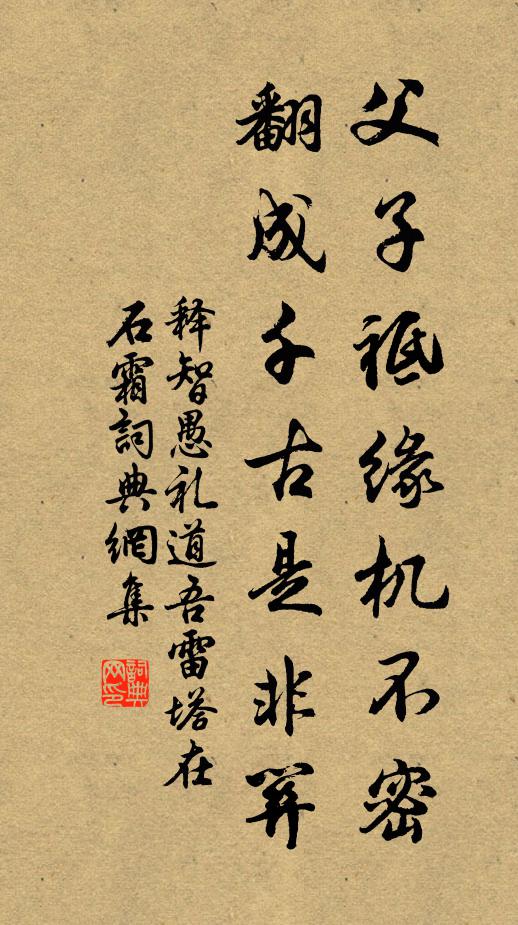 父子祗缘机不密
翻成千古是非关
释智愚礼道吾雷塔在
石霜詞典網集
詞典
网印